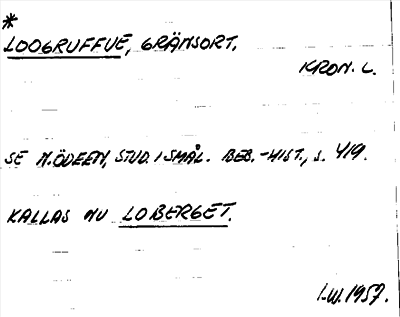 *
LOOGRUFFUE, GRÄNSORT.
KRON. L.
SE N.ÖDEEN, STUD. I SMÅL. BEB.-HIST., S. 419.
KALLAS NU LOBERGET.
I.W. 1957.